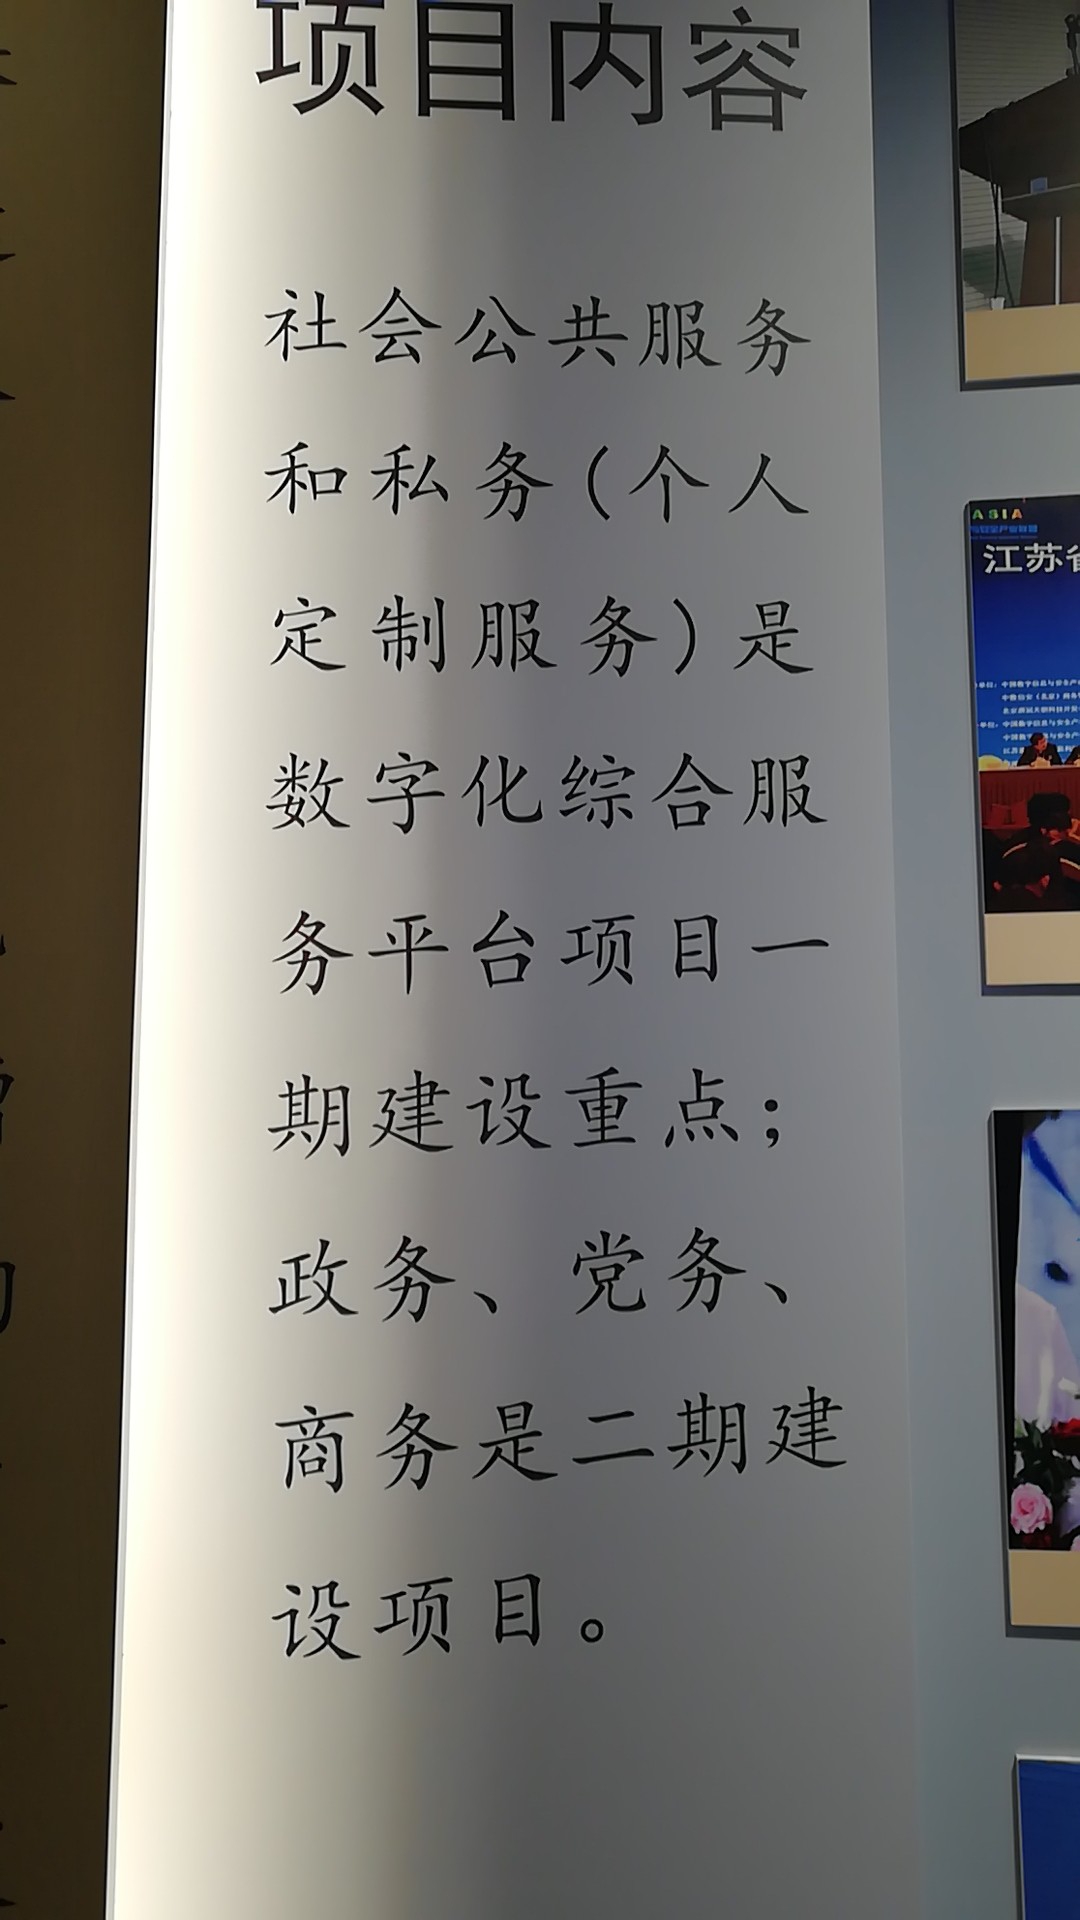 项目内容
社会公共服务
和私务(个人
定制服务)是
数字化综合服
务平台项目一
期建设重点;
政务、党务、
商务是二期建
设项目。
ASIA
江苏省